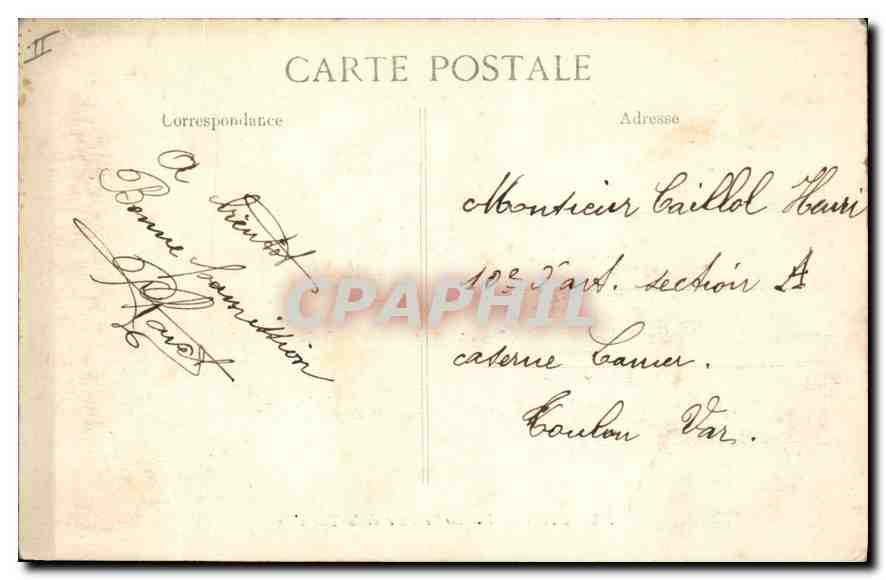 II
CARTE POSTALE
Correspondance
Adresse
A bientot
Bonne
Monsieur Caillol Henri
10e d'art. section A
caserne
Toulon Var.
CPAPHIL